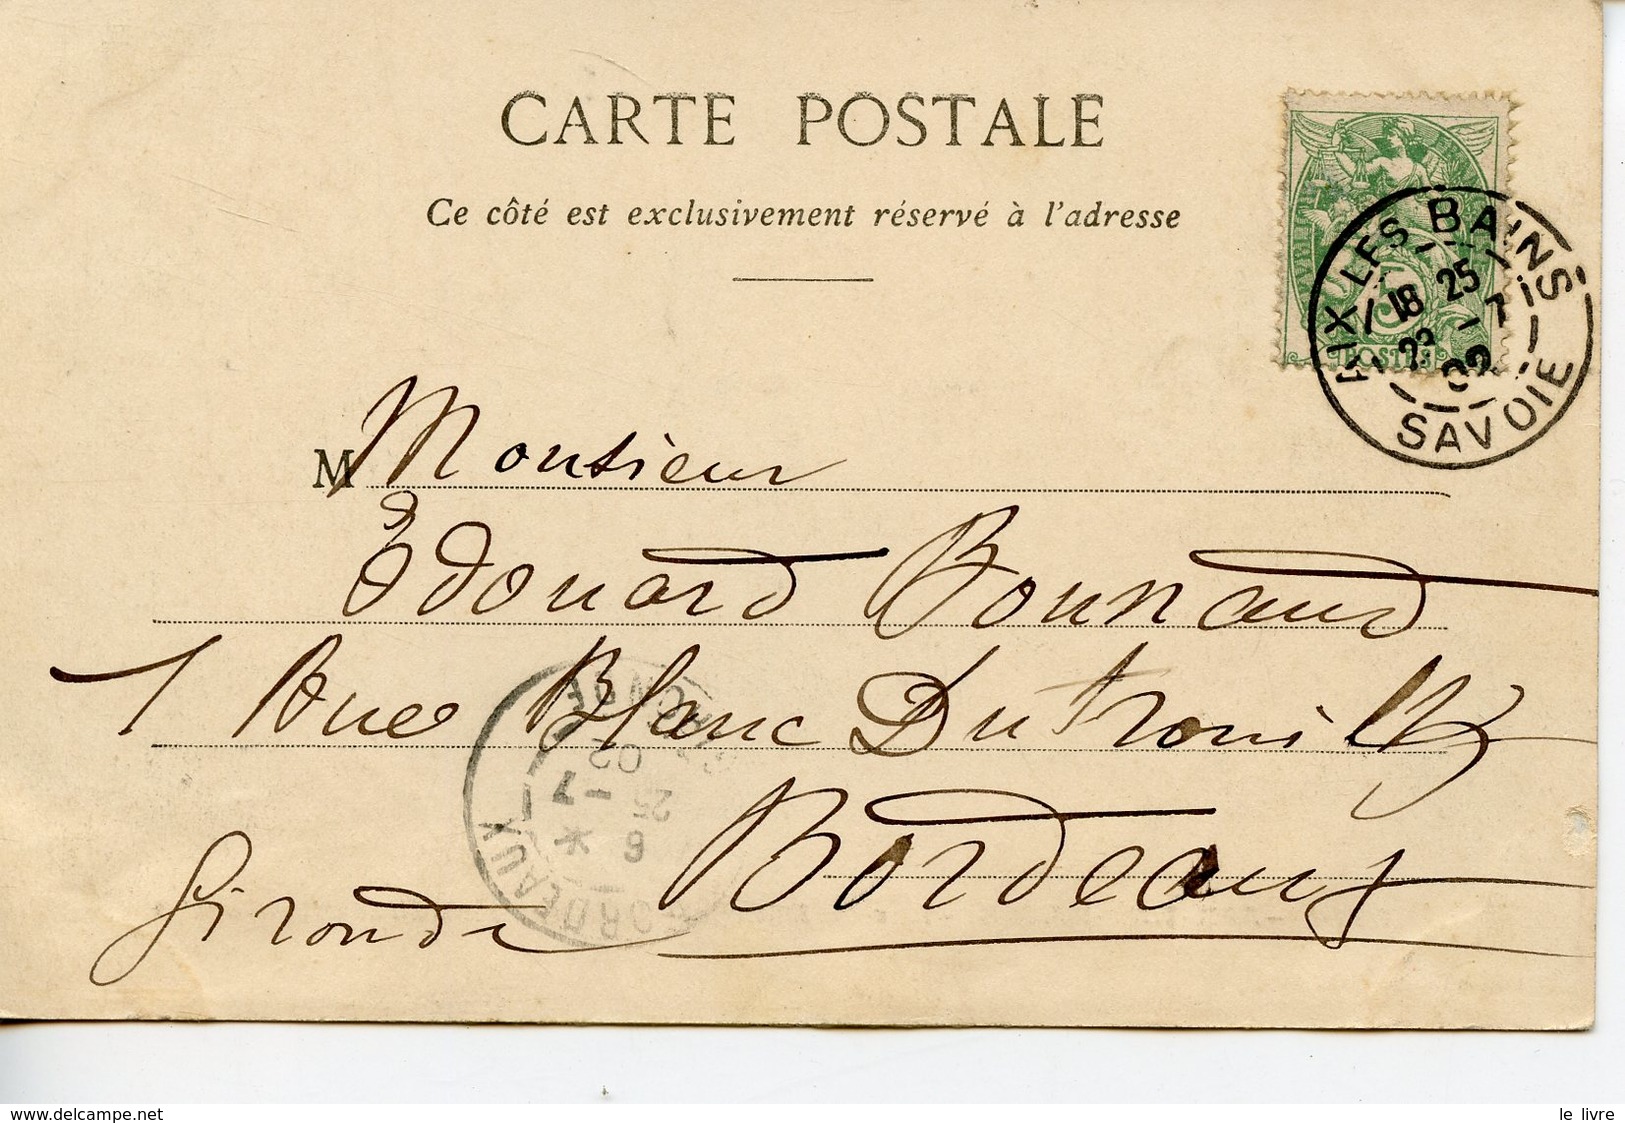 CARTE POSTALE
Ce côté est exclusivement réservé à l'adresse
POSTES
5
AIX LES BAINS
18 25
23 -7
02
SAVOIE
M Monsieur
Édouard Bonnaud
1 Rue Blanc Dutrouilh
Bordeaux
Gironde
BORDEAUX
GIRONDE
6
25
-7
02
www.delcampe.net
le livre